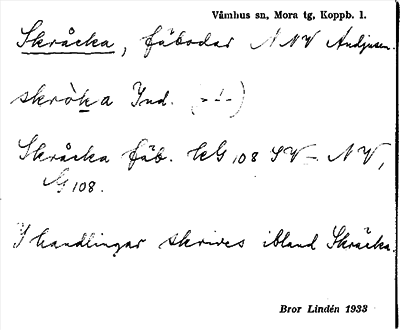 Våmhus sn, Mora tg, Koppb. l.
Skråcka, fäbodar NNV Andjusen.
skròka Ind. (-!-)
Skråcka fäb. kG 108 SV - NV,
G 108.
I handlingar skrives ibland Skräcka.
Bror Lindén 1933